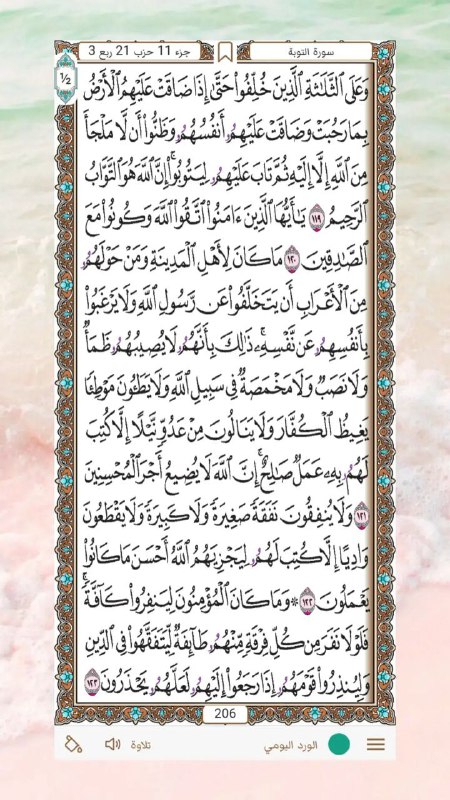 جزء 11 حزب 21 ربع 3
سورة التوبة
½
وَعَلَى ٱلثَّلَٰثَةِ ٱلَّذِينَ خُلِّفُواْ حَتَّىٰٓ إِذَا ضَاقَتْ عَلَيْهِمُ ٱلْأَرْضُ
بِمَا رَحُبَتْ وَضَاقَتْ عَلَيْهِمُۥ أَنفُسُهُمُۥ وَظَنُّوٓاْ أَن لَّا مَلْجَأَ
مِنَ ٱللَّهِ إِلَّآ إِلَيْهِ ثُمَّ تَابَ عَلَيْهِمُۥ لِيَتُوبُوٓاْۚ إِنَّ ٱللَّهَ هُوَ ٱلتَّوَّابُ
ٱلرَّحِيمُ ١١٩ يَٰٓأَيُّهَا ٱلَّذِينَ ءَامَنُواْ ٱتَّقُواْ ٱللَّهَ وَكُونُواْ مَعَ
ٱلصَّٰدِقِينَ ١٢٠ مَا كَانَ لِأَهْلِ ٱلْمَدِينَةِ وَمَنْ حَوْلَهُمُۥ
مِنَ ٱلْأَعْرَابِ أَن يَتَخَلَّفُواْ عَن رَّسُولِ ٱللَّهِ وَلَا يَرْغَبُواْ
بِأَنفُسِهِمُۥ عَن نَّفْسِهِۦۚ ذَٰلِكَ بِأَنَّهُمُۥ لَا يُصِيبُهُمُۥ ظَمَأٌ
وَلَا نَصَبٌ وَلَا مَخْمَصَةٌ فِي سَبِيلِ ٱللَّهِ وَلَا يَطَـُٔونَ مَوْطِئًا
يَغِيظُ ٱلْكُفَّارَ وَلَا يَنَالُونَ مِنْ عَدُوٍّ نَّيْلًا إِلَّا كُتِبَ
لَهُمُۥ بِهِۦ عَمَلٌ صَٰلِحٌۚ إِنَّ ٱللَّهَ لَا يُضِيعُ أَجْرَ ٱلْمُحْسِنِينَ
١٢١ وَلَا يُنفِقُونَ نَفَقَةً صَغِيرَةً وَلَا كَبِيرَةً وَلَا يَقْطَعُونَ
وَادِيًا إِلَّا كُتِبَ لَهُمُۥ لِيَجْزِيَهُمُ ٱللَّهُ أَحْسَنَ مَا كَانُواْ
يَعْمَلُونَ ١٢٢ ۞ وَمَا كَانَ ٱلْمُؤْمِنُونَ لِيَنفِرُواْ كَآفَّةًۚ
فَلَوْلَا نَفَرَ مِن كُلِّ فِرْقَةٍ مِّنْهُمُۥ طَآئِفَةٌ لِّيَتَفَقَّهُواْ فِي ٱلدِّينِ
وَلِيُنذِرُواْ قَوْمَهُمُۥ إِذَا رَجَعُوٓاْ إِلَيْهِمُۥ لَعَلَّهُمُۥ يَحْذَرُونَ ١٢٣
206
الورد اليومي
تلاوة